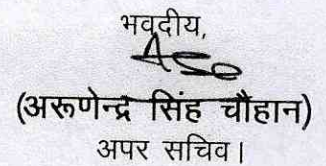 भवदीय,
(अरूणेन्द्र सिंह चौहान)
अपर सचिव।